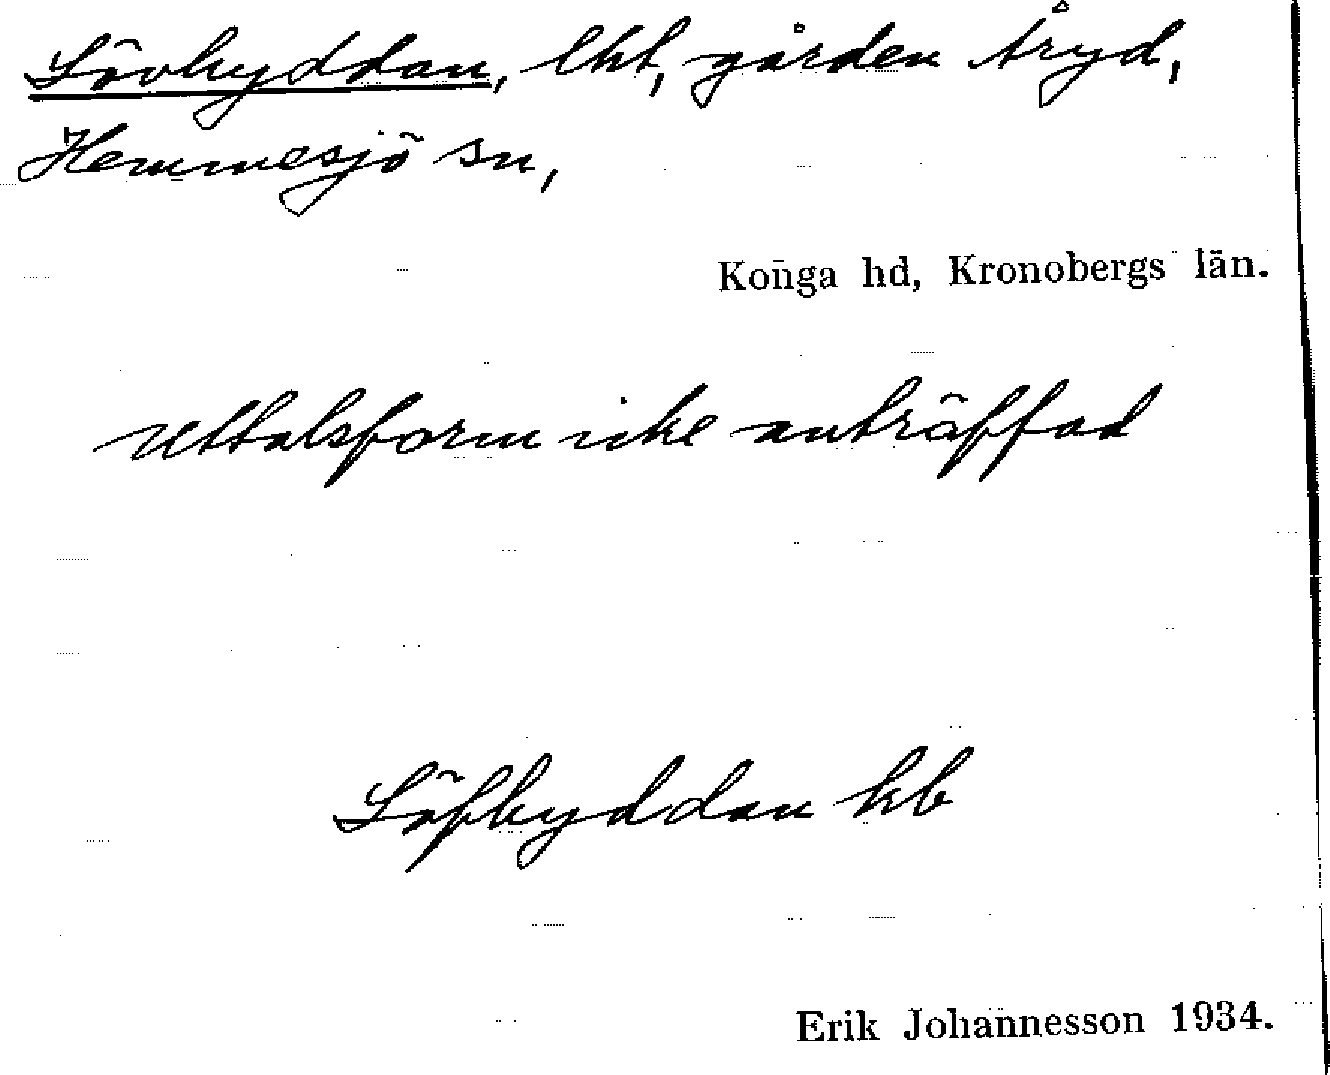 Lövhyddan, lht, gården Åryd,
Hemmesjö sn,
Konga hd, Kronobergs län.
Uttalsform icke anträffad
Löfhyddan kb
Erik Johannesson 1934.